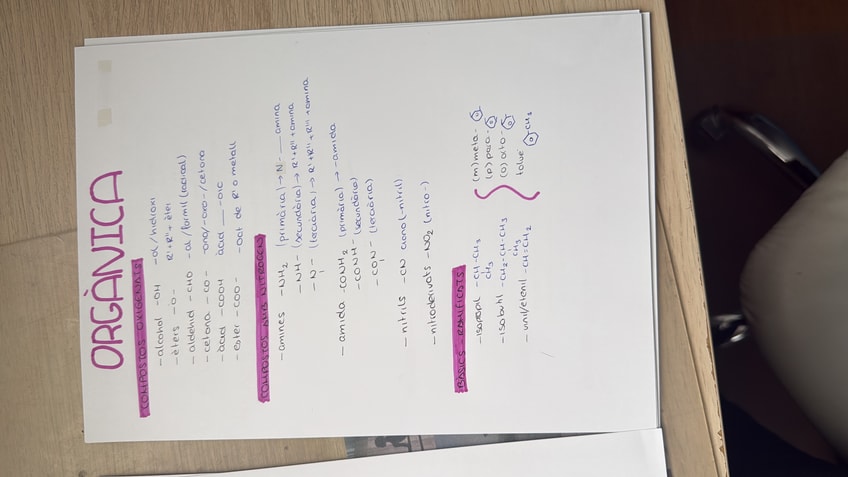 ORGÀNICA
COMPOSTOS OXIGENATS
- alcohol -OH -ol/hidroxi
- èters -O- R'+R''+ èter
- aldehid -CHO -al/formil (radical)
- cetona -CO- -ona/-oxo-/cetona
- àcid -COOH àcid ___ -oic
- ester -COO- -oat de R' o metall
COMPOSTOS AMB NITROGEN
- amines -NH2 (primària) → N-___amina
-NH- (secundària) → R'+R''+amina
-N- (terciària) → R'+R''+R'''+amina
- amida -CONH2 (primària) → -amida
-CONH- (secundària)
-CON- (terciària)
- nitrils -CN ciano(-nitril)
- nitroderivats -NO2 (nitro-)
BÀSICS - RAMIFICATS
- isopropil -CH-CH3
CH3
- isobutil -CH2-CH-CH3
CH3
- vinil/etenil -CH=CH2
(m) meta-
(p) para-
(o) orto-
toluè CH3